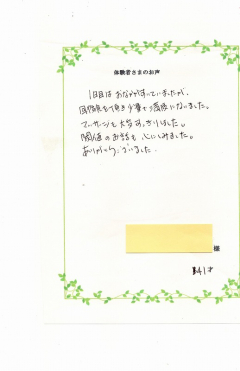 体験者さまのお声
1日目はおなかがすいていましたが、
を頂き少量で満腹になりました。
マッサージも大変すっきりしました。
のお話も心にしみました。
ありがとうございました。
様
41才